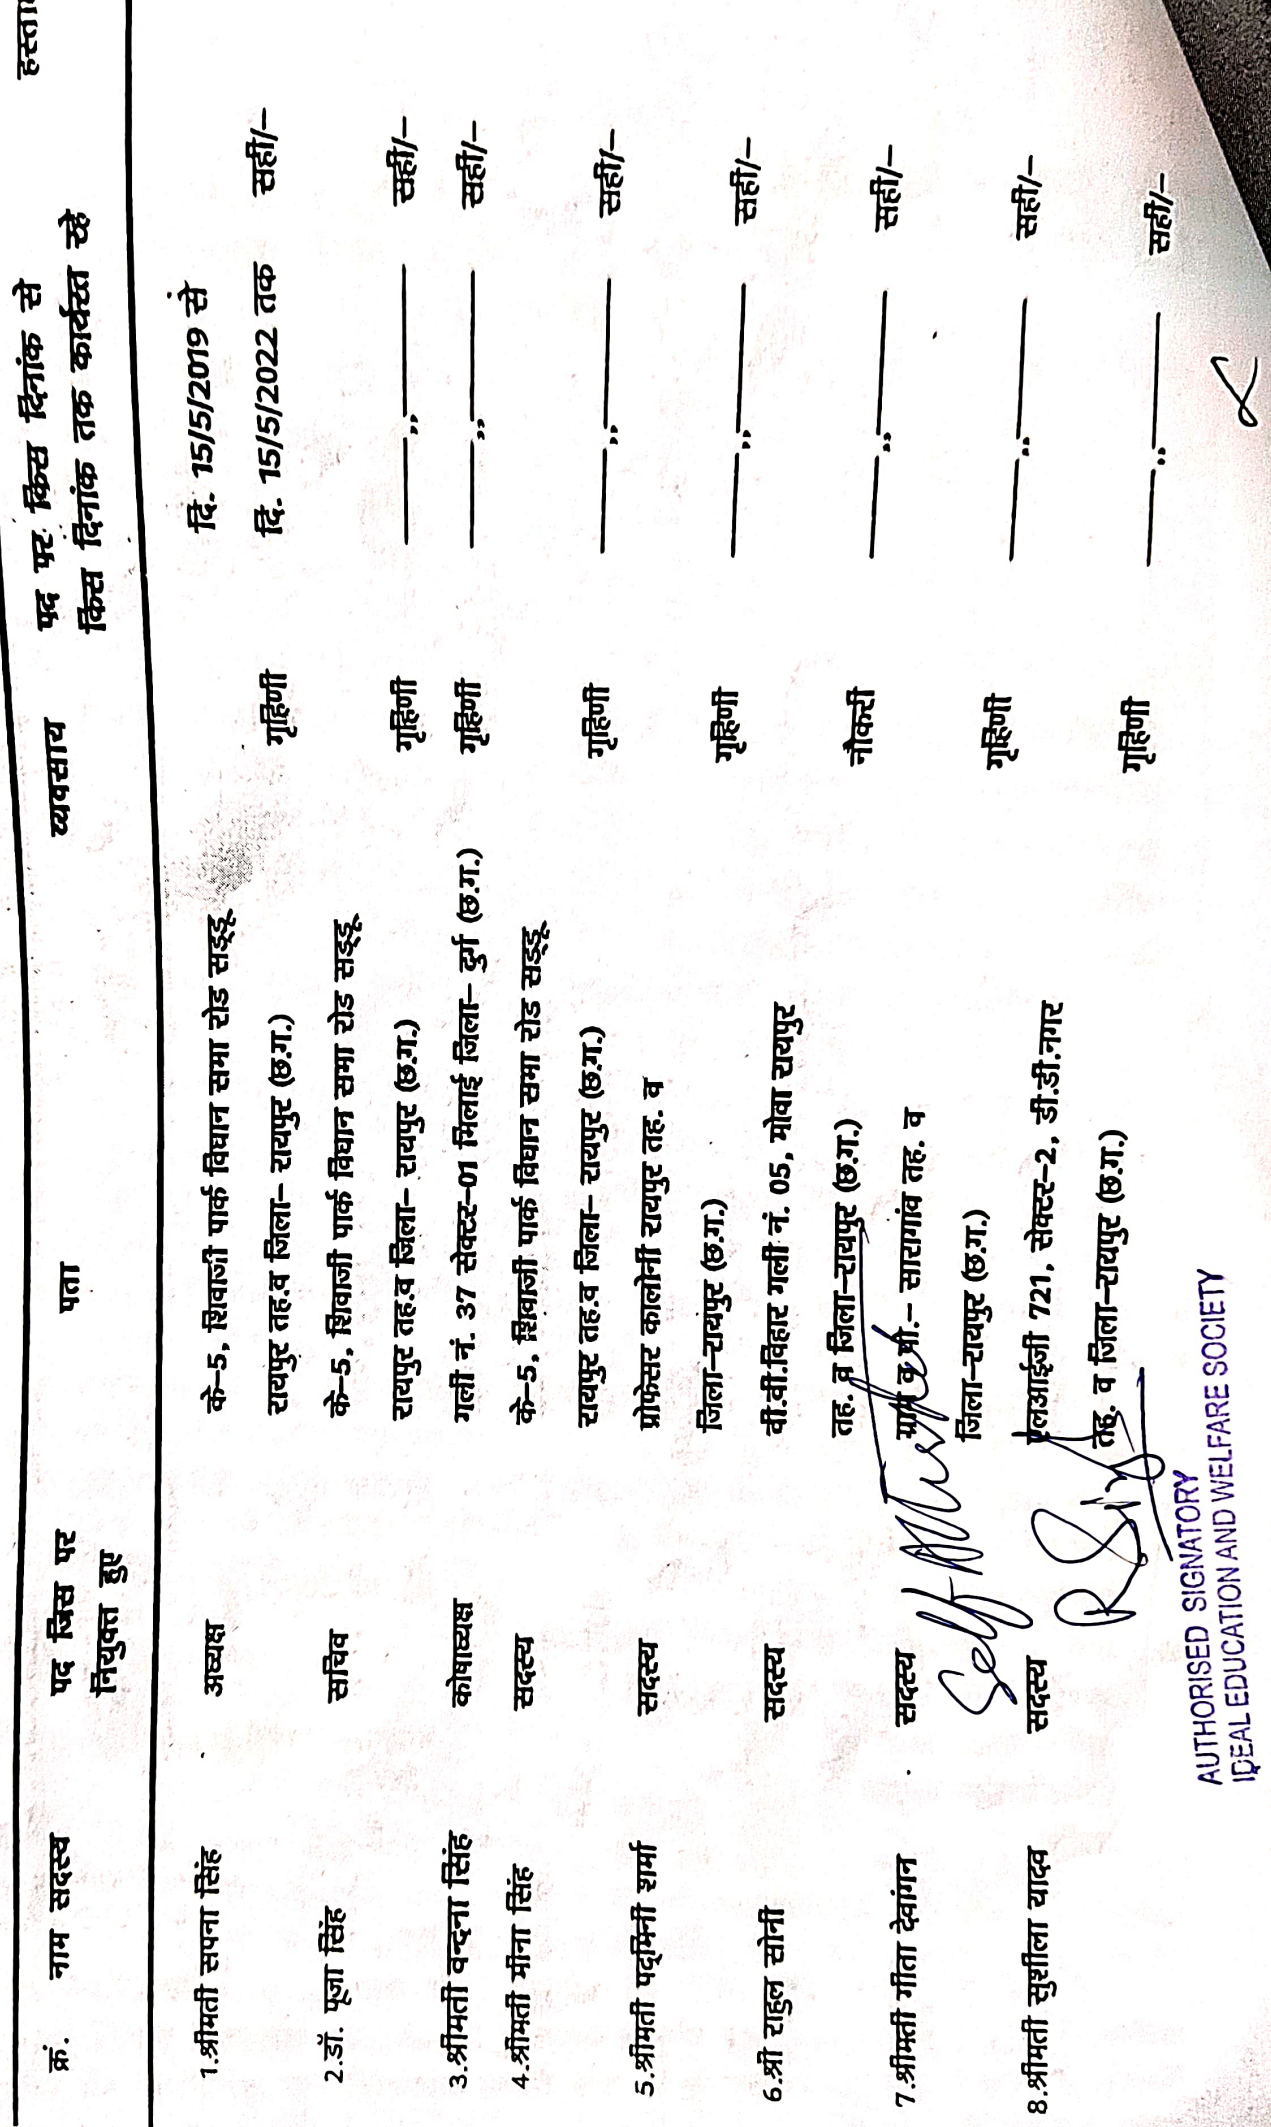 क्रं. नाम सदस्य पद जिस पर पता व्यवसाय पद पर किस दिनांक से
नियुक्त हुए किस दिनांक तक कार्यरत रहे
1.श्रीमती सपना सिंह अध्यक्ष के–5, शिवाजी पार्क विधान सभा रोड सड्डू दि. 15/5/2019 से
रायपुर तह.व जिला– रायपुर (छ.ग.) गृहिणी दि. 15/5/2022 तक सही/–
2.डॉ. पूजा सिंह सचिव के–5, शिवाजी पार्क विधान सभा रोड सड्डू
रायपुर तह.व जिला– रायपुर (छ.ग.) गृहिणी ——,,—— सही/–
3.श्रीमती वन्दना सिंह कोषाध्यक्ष गली नं. 37 सेक्टर–01 भिलाई जिला– दुर्ग (छ.ग.) गृहिणी ——,,—— सही/–
4.श्रीमती मीना सिंह सदस्य के–5, शिवाजी पार्क विधान सभा रोड सड्डू
रायपुर तह.व जिला– रायपुर (छ.ग.) गृहिणी ——,,—— सही/–
5.श्रीमती पद्मिनी शर्मा सदस्य प्रोफेसर कालोनी रायपुर तह. व
जिला–रायपुर (छ.ग.) गृहिणी ——,,—— सही/–
6.श्री राहुल सोनी सदस्य वी.वी.विहार गली नं. 05, मोवा रायपुर
तह. व जिला–रायपुर (छ.ग.) नौकरी ——,,—— सही/–
7.श्रीमती गीता देवांगन सदस्य ग्राम व पो.– सारागांव तह. व
जिला–रायपुर (छ.ग.) गृहिणी ——,,—— सही/–
8.श्रीमती सुशीला यादव सदस्य एलआईजी 721, सेक्टर–2, डी.डी.नगर
तह. व जिला–रायपुर (छ.ग.) गृहिणी ——,,—— सही/–
Self
AUTHORISED SIGNATORY
IDEAL EDUCATION AND WELFARE SOCIETY